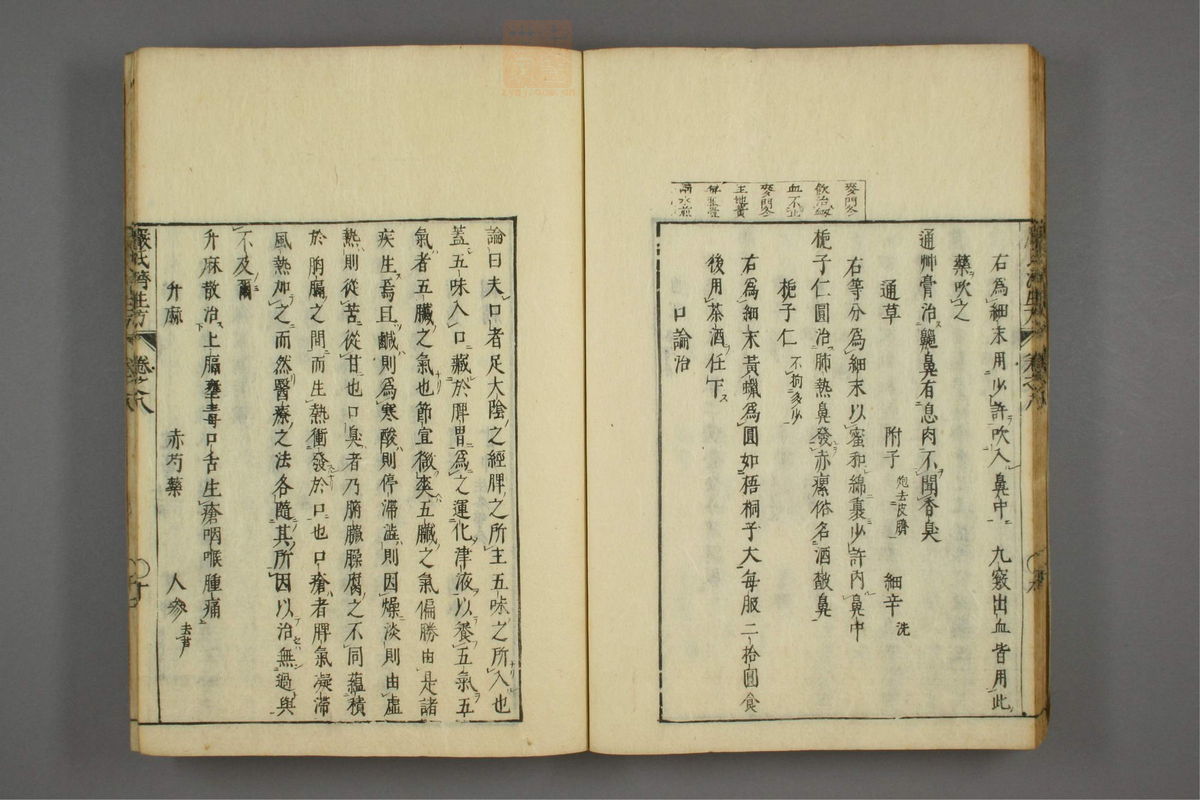 麥門冬
飲治衂
血不止
麥門冬
生地黃
右為細末用少許吹入鼻中 九竅出血皆用此
藥吹之
通艸膏治齆鼻有息肉不聞香臭
通草 附子炮去皮臍 細辛洗
右等分為細末以蜜和綿裹少許內鼻中
梔子仁圓治肺熱鼻發赤瘰俗名酒皶鼻
梔子仁不拘多少
右為細末黃蠟為圓如梧桐子大每服二拾圓食
後用茶酒任下
口論治
論曰夫口者足太陰之經脾之所主五味之所入也
蓋五味入口藏於脾胃為之運化津液以養五氣五
氣者五臟之氣也節宜微爽五臟之氣偏勝由是諸
疾生焉且鹹則為寒酸則停滯澁則因燥淡則由虛
熱則從苦從甘也口臭者乃腑臟臊腐之不同蘊積
於胸膈之間而生熱衝發於口也口瘡者脾氣凝滯
風熱加之而然醫療之法各隨其所因以治無過與
不及爾
升麻散治上膈壅毒口舌生瘡咽喉腫痛
升麻 赤芍藥 人參去蘆
嚴氏濟生方 卷之八